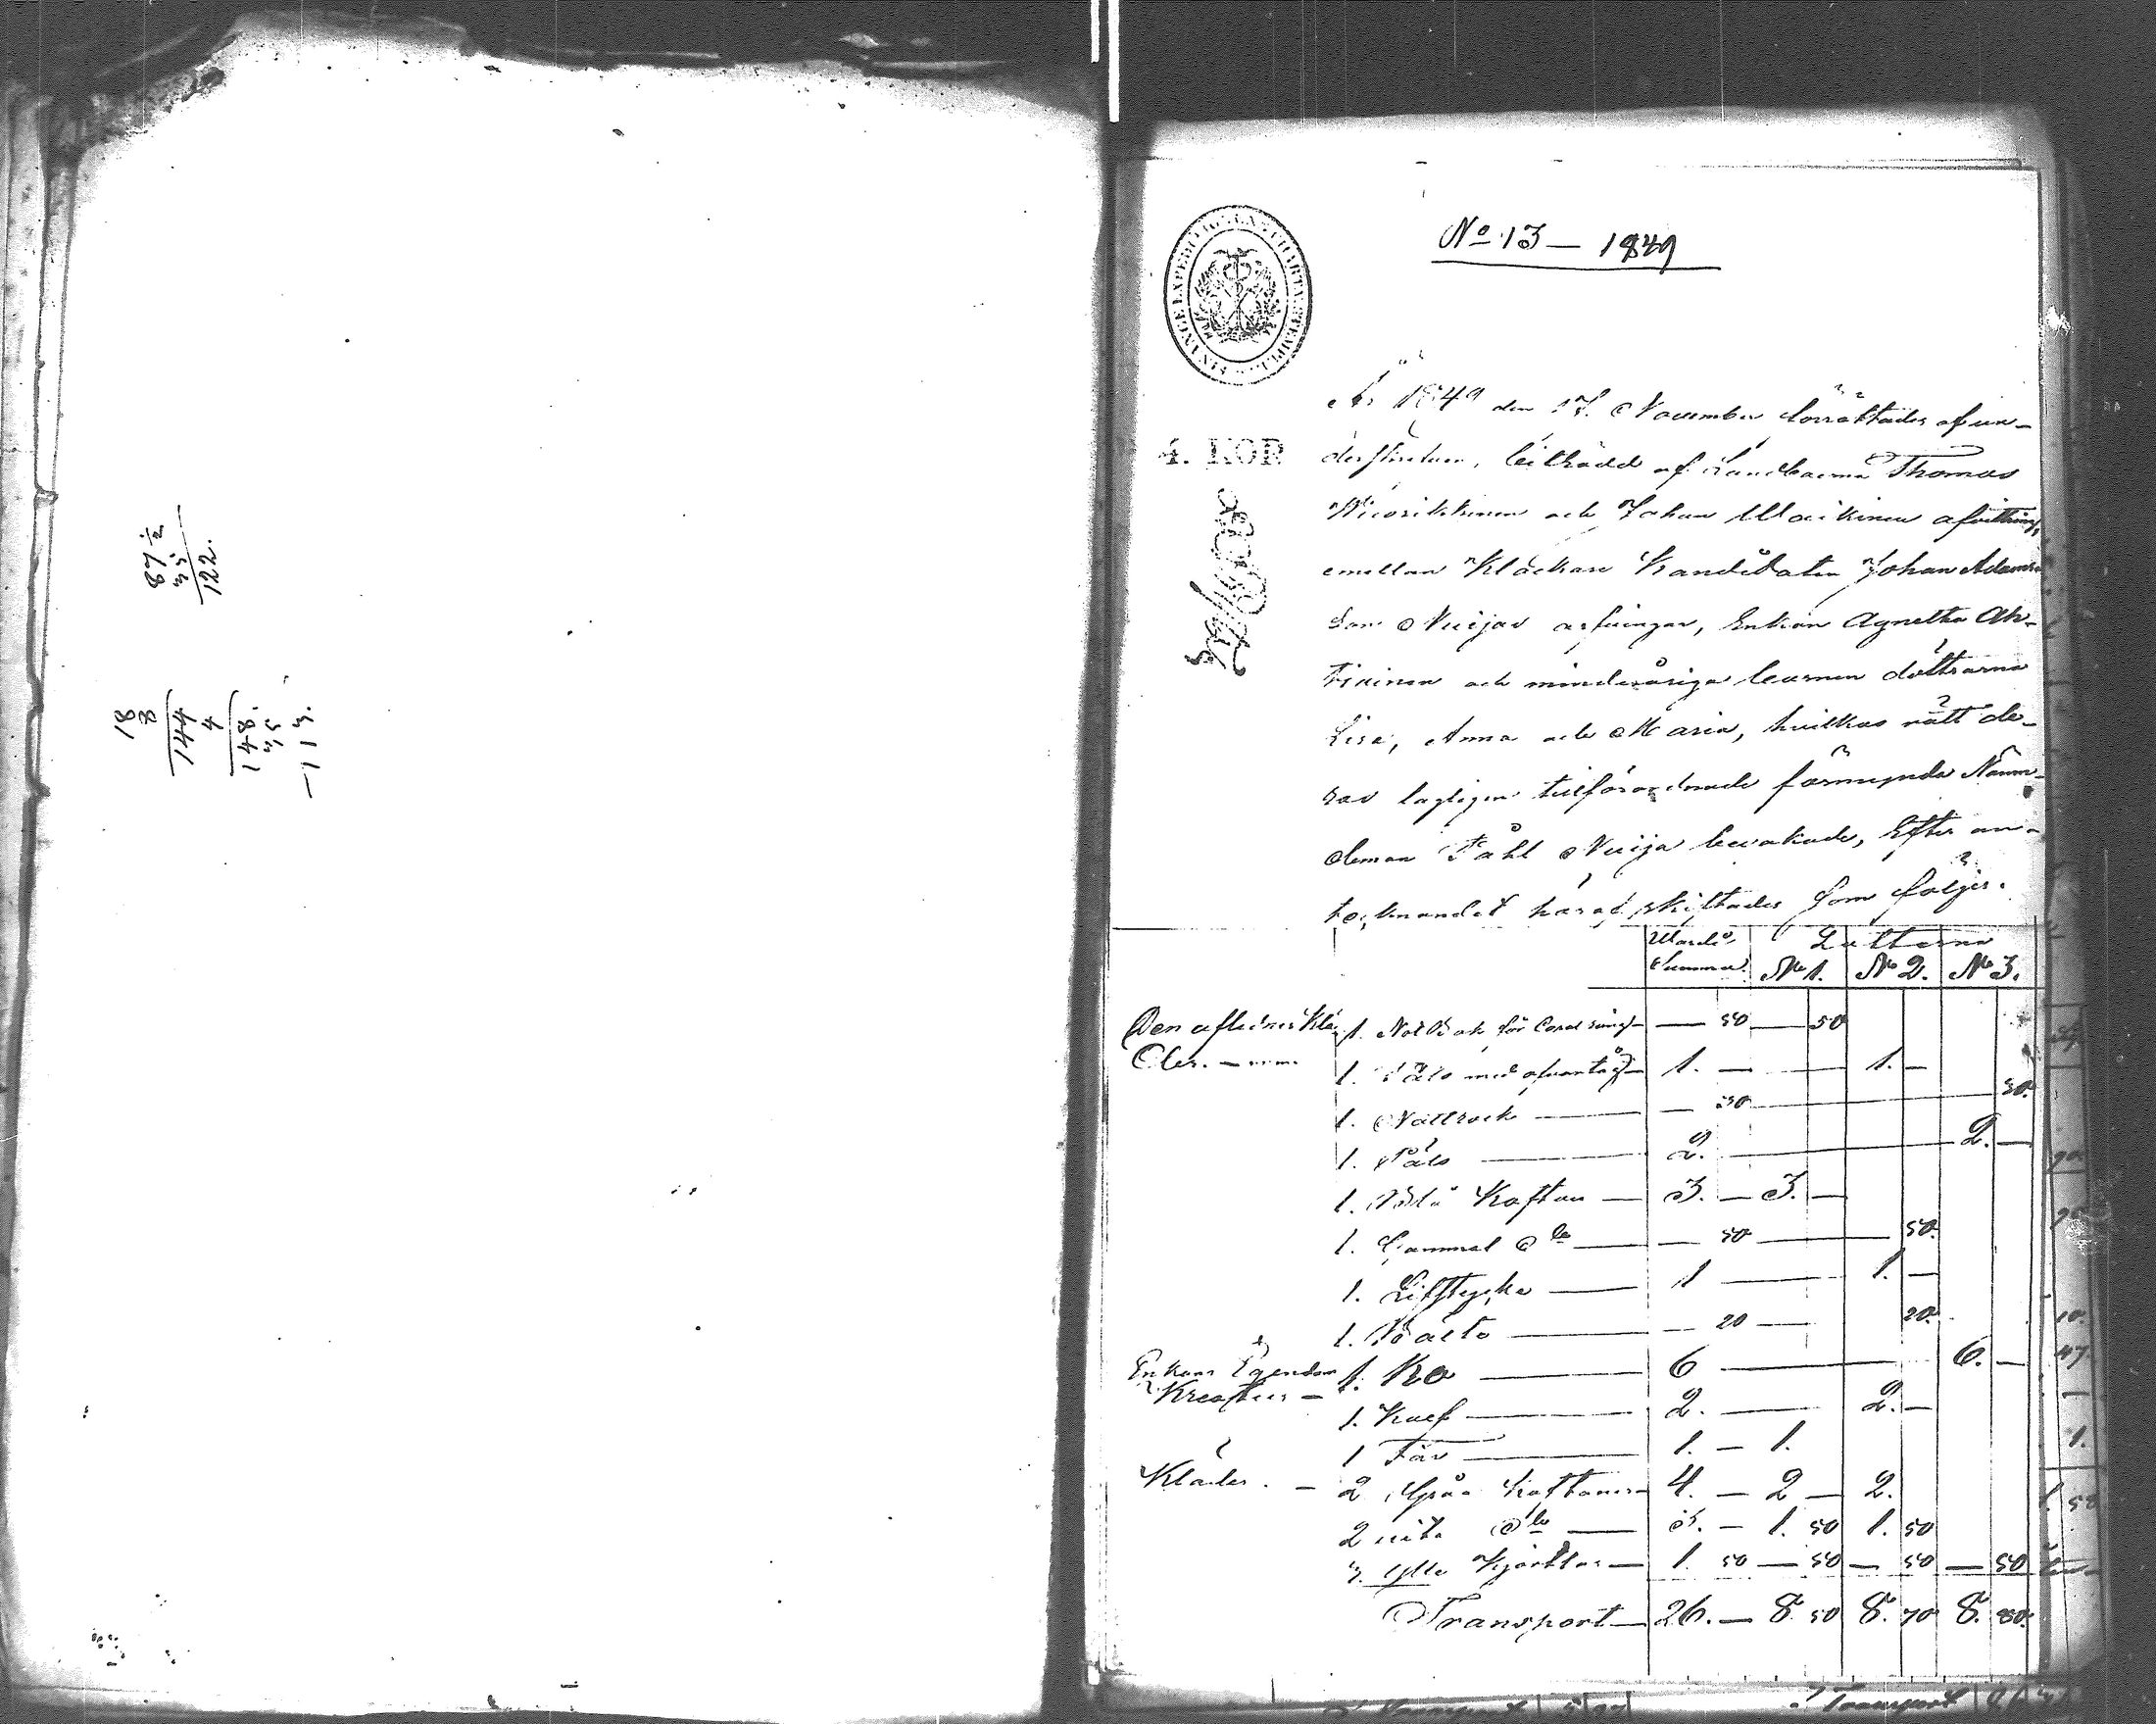 87 1/2
35
122.
18
8
144
4
148.
35
113.
No 13 — 1849
4. KOP
År 1849 den 17. November förrättades af un-
derskrifven, biträdd af Landbönderna Thomas
och Johan afvittring
emellan Klockare Kandidaten Johan Adams
son Nuijas arfvingar, Enkan Agnetha Ah-
tiainen och minderåriga barnen döttrarna
Lisa, Anna och Maria, hvilkas rätt de-
ras lagligen tillförordnade förmynda Nämn-
deman Påhl Nuija bevakade, Efter an-
tecknandet häraf skiftades som följer.
Värde Summa Lotterna
No 1. No 2. No 3.
Den aflednes Klä 1. Not Bok för Coral sång — 50 — 50
der. — 1. Päls med öfvertåg — 1. — 1. —
1. Nattrock — — 30 — 30.
1. Päls — 2. — 2. —
1. Blå Kaftan — 3. — 3. —
1. Gammal Do — — 50 — 50.
1. Lifstycke — 1 — 1. —
1. Bälte — — 20 — 20.
Enkans Egendom 1. Ko — 6 — 6. —
Kreatur — 1. Kalf — 2. — 2. —
1 Får — 1. — 1.
Kläder. — 2 Gråa Kaftaner — 4. — 2 — 2.
2 vita Do — 3. — 1. 50 1. 50
3. ylle Kjortlar — 1. 50 — 50 — 50 — 50
Transport — 26. — 8. 50 8. 70 8. 80.
Transport